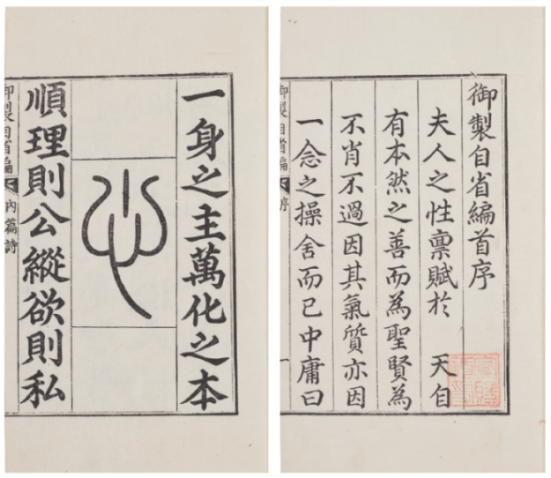 御製自省編首序
夫人之性稟賦於 天自
有本然之善而為聖賢為
不肖不過因其氣質亦因
一念之操舍而已中庸曰
御製自省編 序 一
一身之主萬化之本
心
順理則公縱欲則私
御製自省編 內篇詩